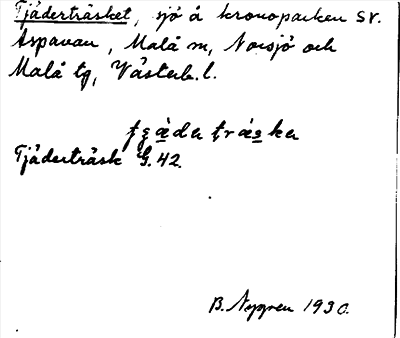 Tjäderträsket, sjö å kronoparken SV.
Aspavan, Malå m, Norsjö och
Malå tg, Västerb. l.
Tjäderträsk G. 42.
B. Nygren 1930.